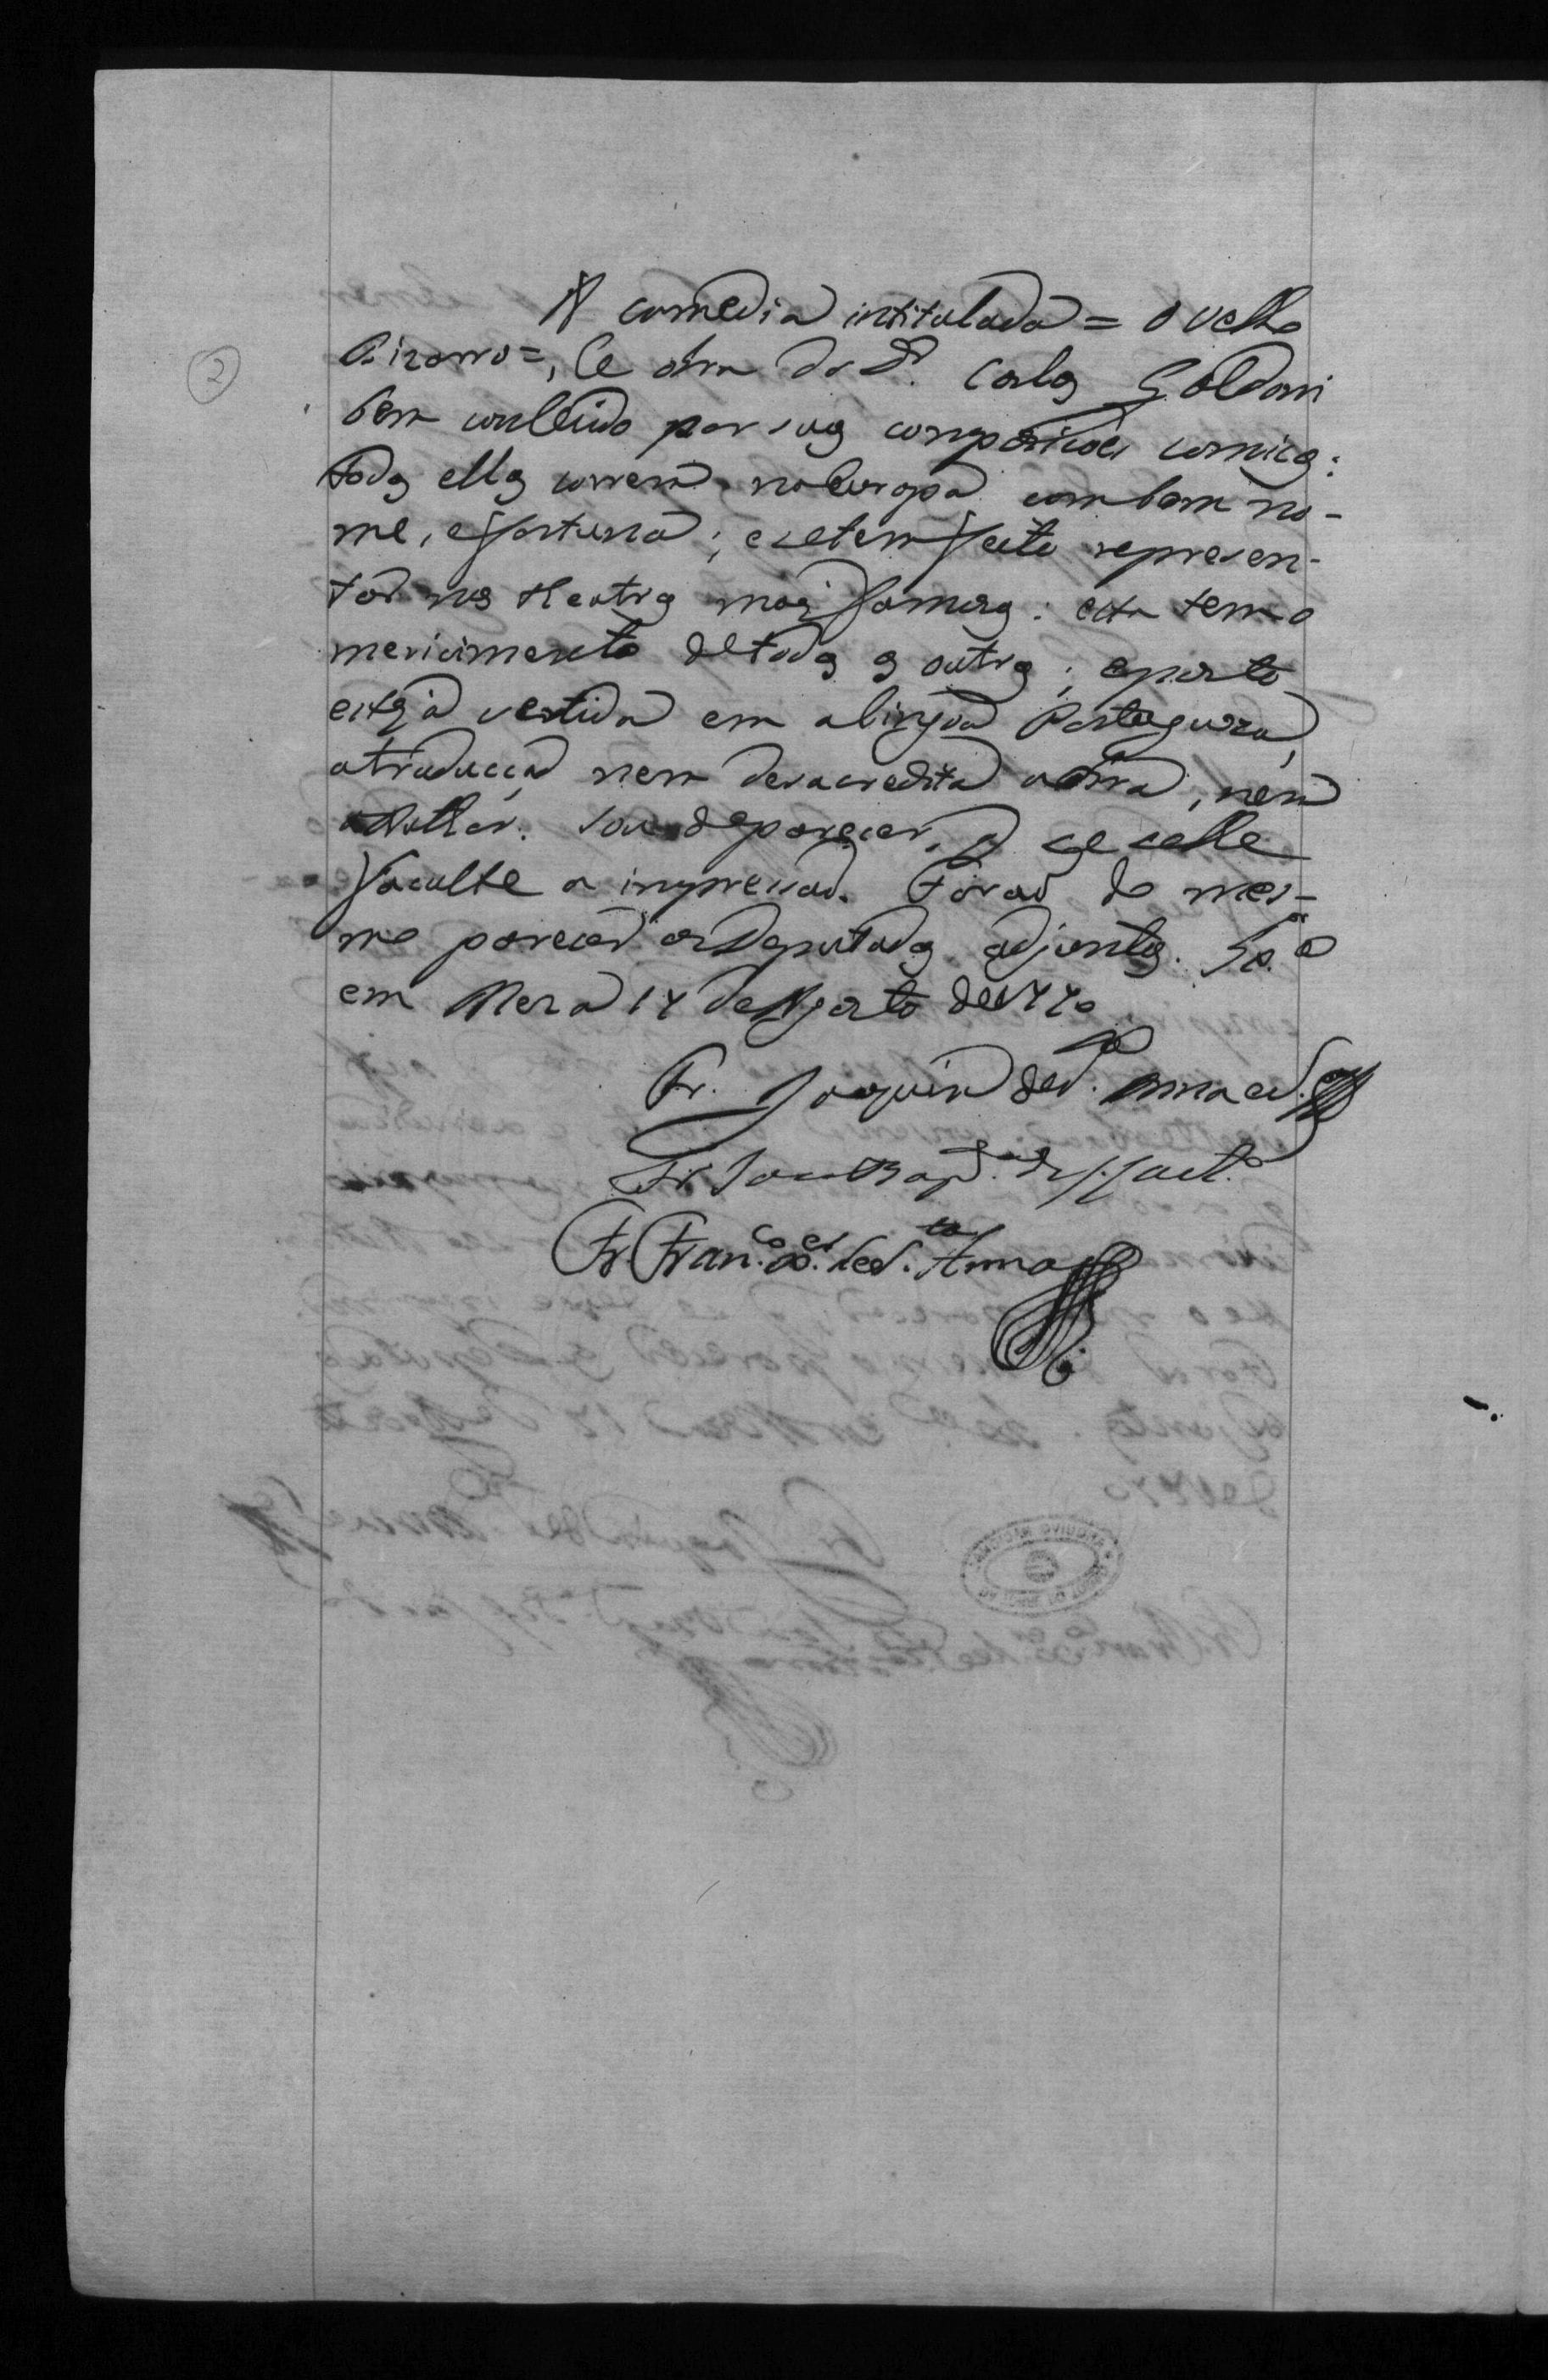 2
A comedia intitulada = O velho
bizarro =, he obra do Dr. Carlos Goldoni
bem conhecido por suas composicoes comicas:
todas ellas correm na Europa com bom no-
me, e fortuna; e se tem feito represen-
tar nos theatros mais famozos: esta tem o
merecimento de todas as outras; e posto
esteja vestida em a lingoa Portugueza,
a traducçaõ nem desacredita a obra, nem
o Author. Sou de parecer, q se lhe
faculte a impressaõ. Foraõ do mes-
mo parecer os Deputados adjuntos. Lxª
em Meza 14 de Agosto de 1770
Fr. Joaquim de S. Anna e S.ª
Fr. Joaõ Bap.ta de S. Caet.º
Fr. Fran.co X.er de S. ta Anna